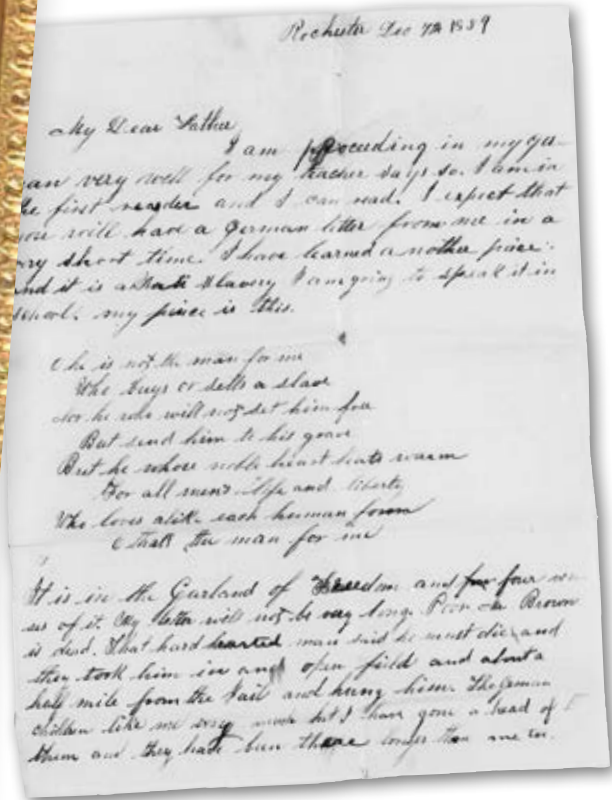 Rochester Dec 7th 1859
My Dear Father
I am proceeding in my ger-
an very well for my teacher says so. I am in
he first reader and I can read. I expect that
you will have a German letter from me in a
ery short time. I have learned a nother peice.
nd it is Slavery I am going to speak it in
school. my peice is this.
O he is not the man for me
Who buys or sells a slave
Nor he who will not set him free
But send him to his grave
But he whose noble heart beats warm
For all men's life and liberty
Who loves alike each human form
O that's the man for me
It is in the Garland of Freedom and four
ses of it. My letter will not be very long. Poor Brown
is dead. That hard hearted man said he must die and
they took him in an open field and about a
half mile from the jail and hung him. The German
children like me very much but I have gone a head of
them and they have been there longer than me too.